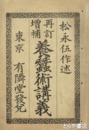 松永伍作述
再訂
増補
養蚕術講義
東京 有隣堂發兌